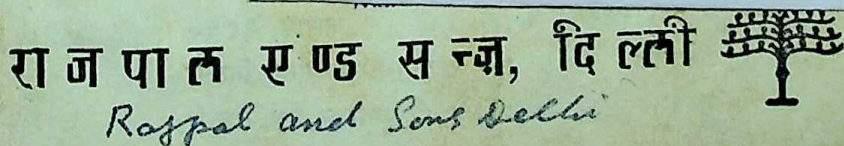 राजपाल एण्ड सन्ज़, दिल्ली
Rajpal and Sons Delhi